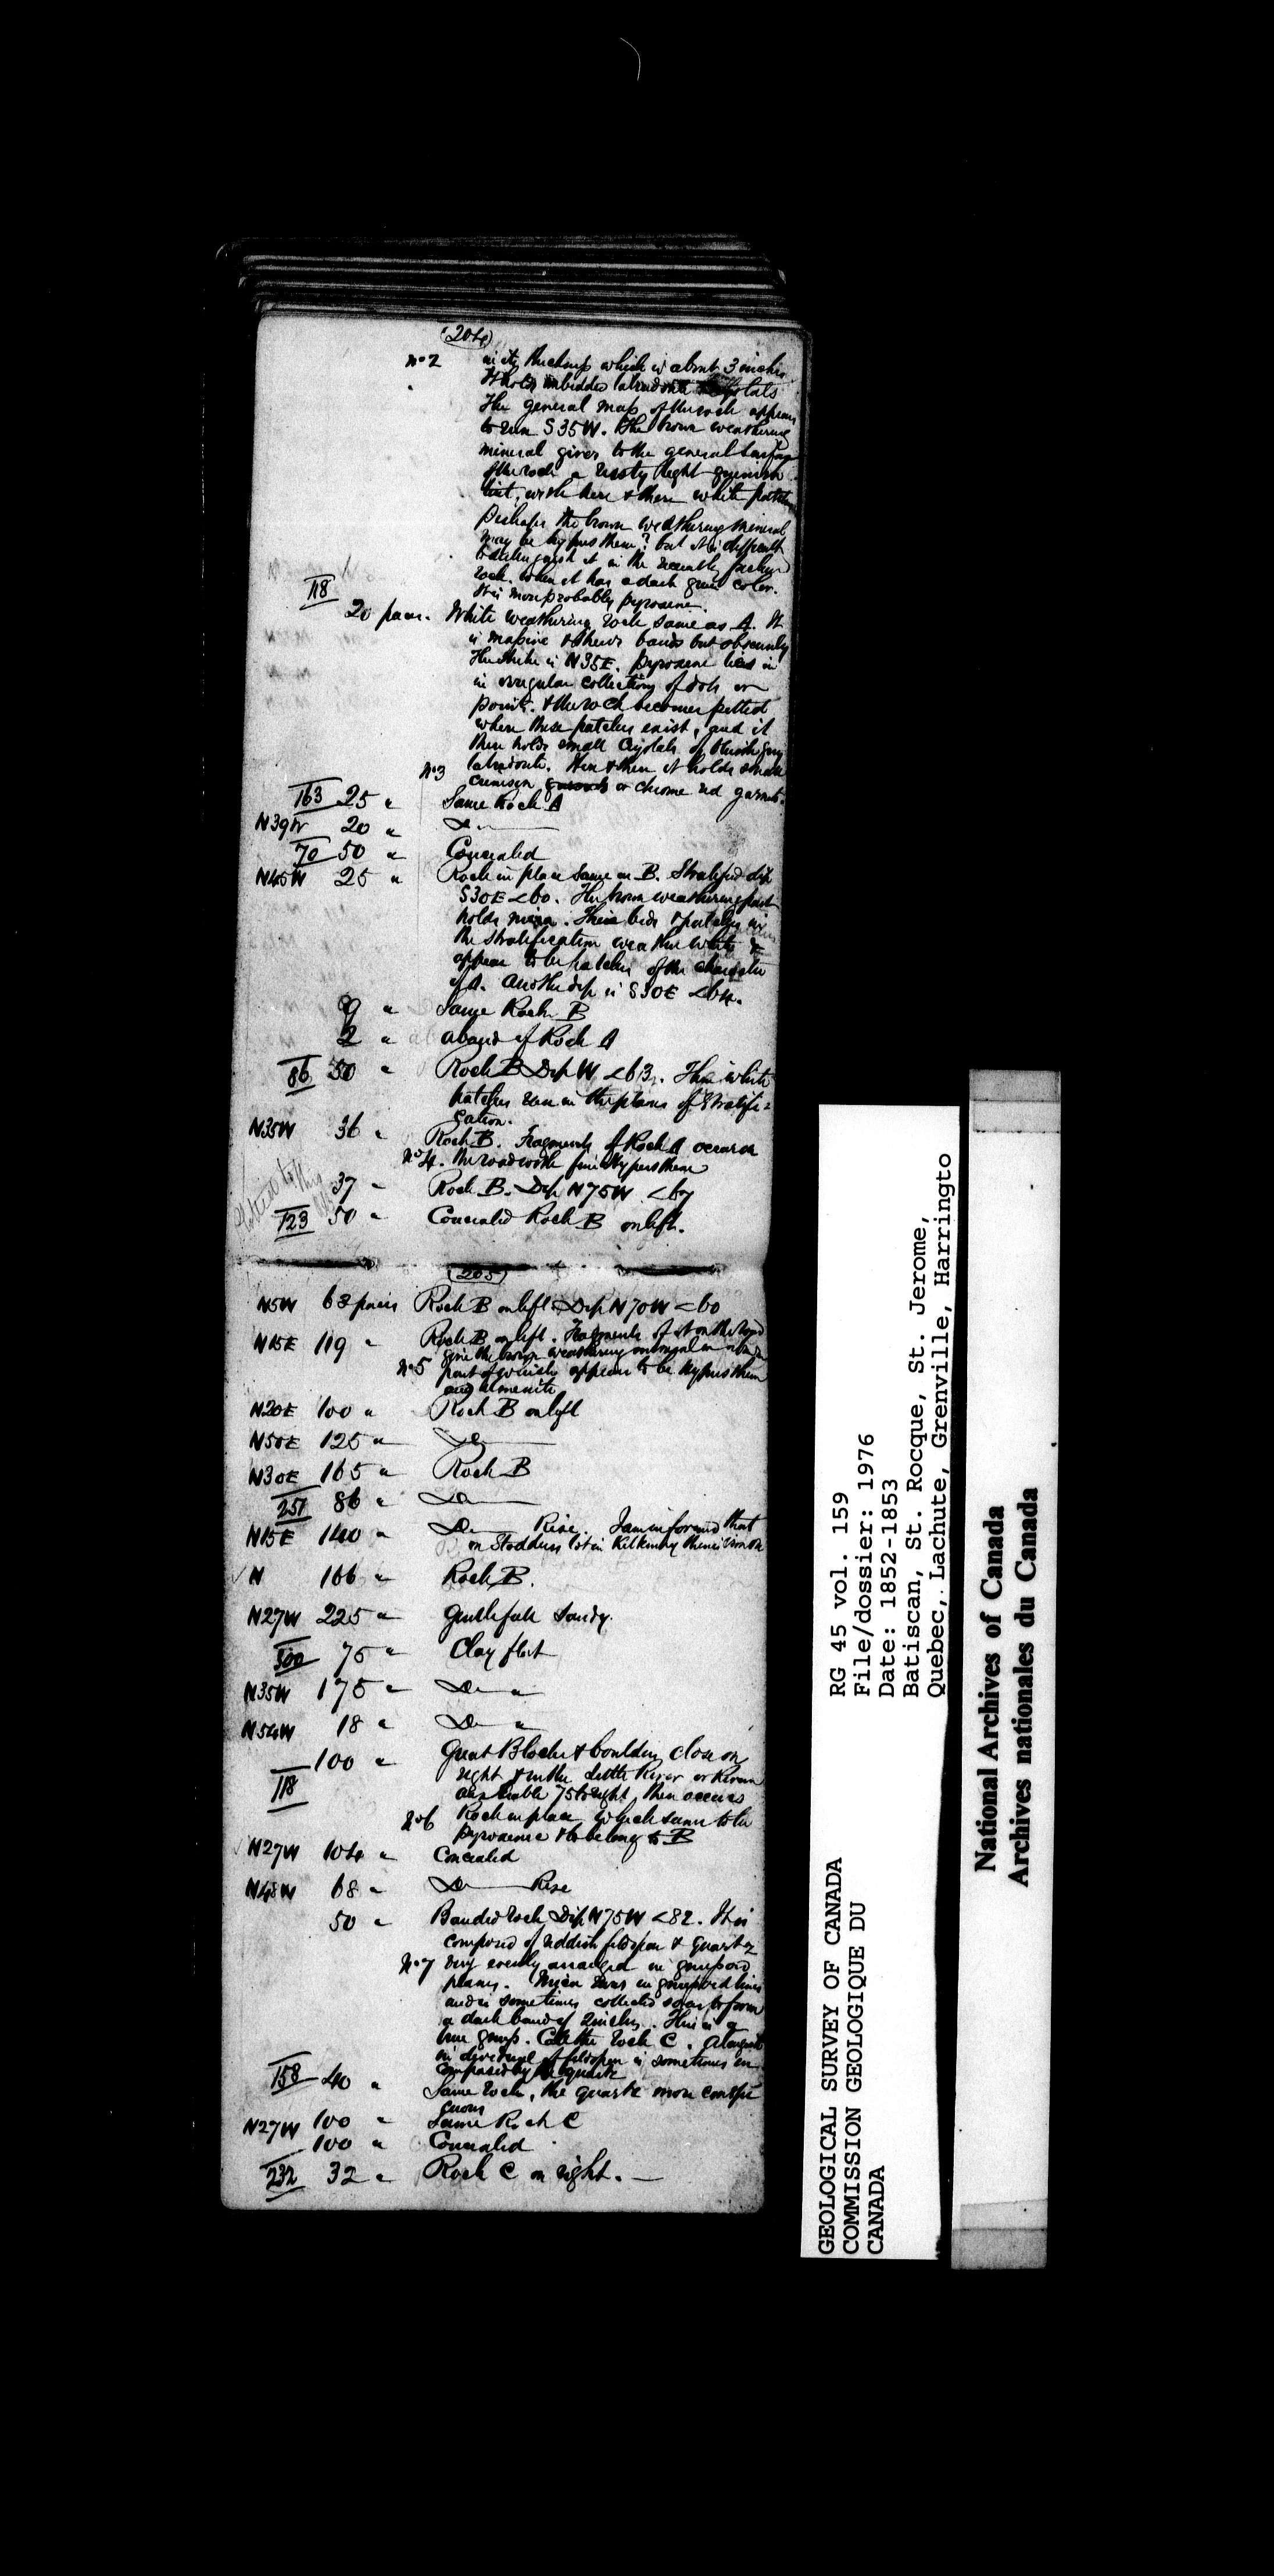 (204)
No 2 in its thickness which is about 3 inches
It holds imbedded labradorite crystals
The general mass of the rock appears
to run S35W. The brown weathering
mineral gives to the general surface
of the rock a rusty light greenish
tint, with here & there white patches
Perhaps the brown weathering mineral
may be hypersthene? but it is difficult
to distinguish it in the recently fractured
rock. when it has a dark green color.
118
It is more probably pyroxene.
20 paces. White weathering rock same as A. It
is massive & shews bands but obscurely
The strike is N35E. pyroxene lies in
in irregular collections of dots or
points. & the rock becomes pitted
where these patches exist, and it
then holds small crystals of bluish grey
labradorite. Here & there it holds small
No 3 crimson or chrome red garnets.
163 25 " Same Rock A
N39W 20 " Do
70 50 " Concealed
N45W 25 " Rock in place same as B. Stratified dip
S30E <60. The brown weathering part
holds mica. There beds & patches in
the stratification weather white &
appear to be patches of the character
of A. Another dip is S30E <64.
9 " Same Rock B
2 " a band of Rock A
86 50 " Rock B Dip W <63. The white
patches run in the plane of stratifi=
cation.
N35W 36 " Rock B. Fragments of Rock A occur on
No 4. the road with fine Hypersthene
37 " Rock B. Dip N75W <67
123 50 " Concealed Rock B on left.
(205)
N5W 63 paces Rock B on left Dip N70W <60
N15E 119 " Rock B on left. Fragments of it on the road
give the brown weathering mineral
No 5 part of which appears to be Hypersthene
and ilmenite
N20E 100 " Rock B on left
N50E 125 " Do
N30E 165 " Rock B
251 86 " Do
N15E 140 " Do Rise. I am informed that
on Stoddarts lot in Kilkenny there is iron ore
N 166 " Rock B.
N27W 225 " Gentle fall Sandy.
300 75 " Clay flat
N35W 175 " Do "
N54W 18 " Do "
100 " Great Blocks & boulders close on
118 right & in the Little River or
75 to right. then occurs
No 6 Rock in place which seems to be
pyroxene & to belong to B
N27W 104 " Concealed
N48W 68 " Do Rise
50 " Banded rock Dip N75W <82. It is
composed of reddish feldspar & quartz
No 7 very evenly arranged in gneissoid
planes. Mica runs in gneissoid lines
and is sometimes collected so as to form
a dark band of 2 inches. This is a
true gneiss. Call the rock C.
of feldspar is sometimes
by quartz
158 40 " Same rock, the quartz more conspi
cuous
N27W 100 " Same Rock C
100 " Concealed
232 32 " Rock C on right.
GEOLOGICAL SURVEY OF CANADA
COMMISSION GEOLOGIQUE DU
CANADA
RG 45 vol. 159
File/dossier: 1976
Date: 1852-1853
Batiscan, St. Rocque, St. Jerome,
Quebec, Lachute, Grenville, Harringto
National Archives of Canada
Archives nationales du Canada